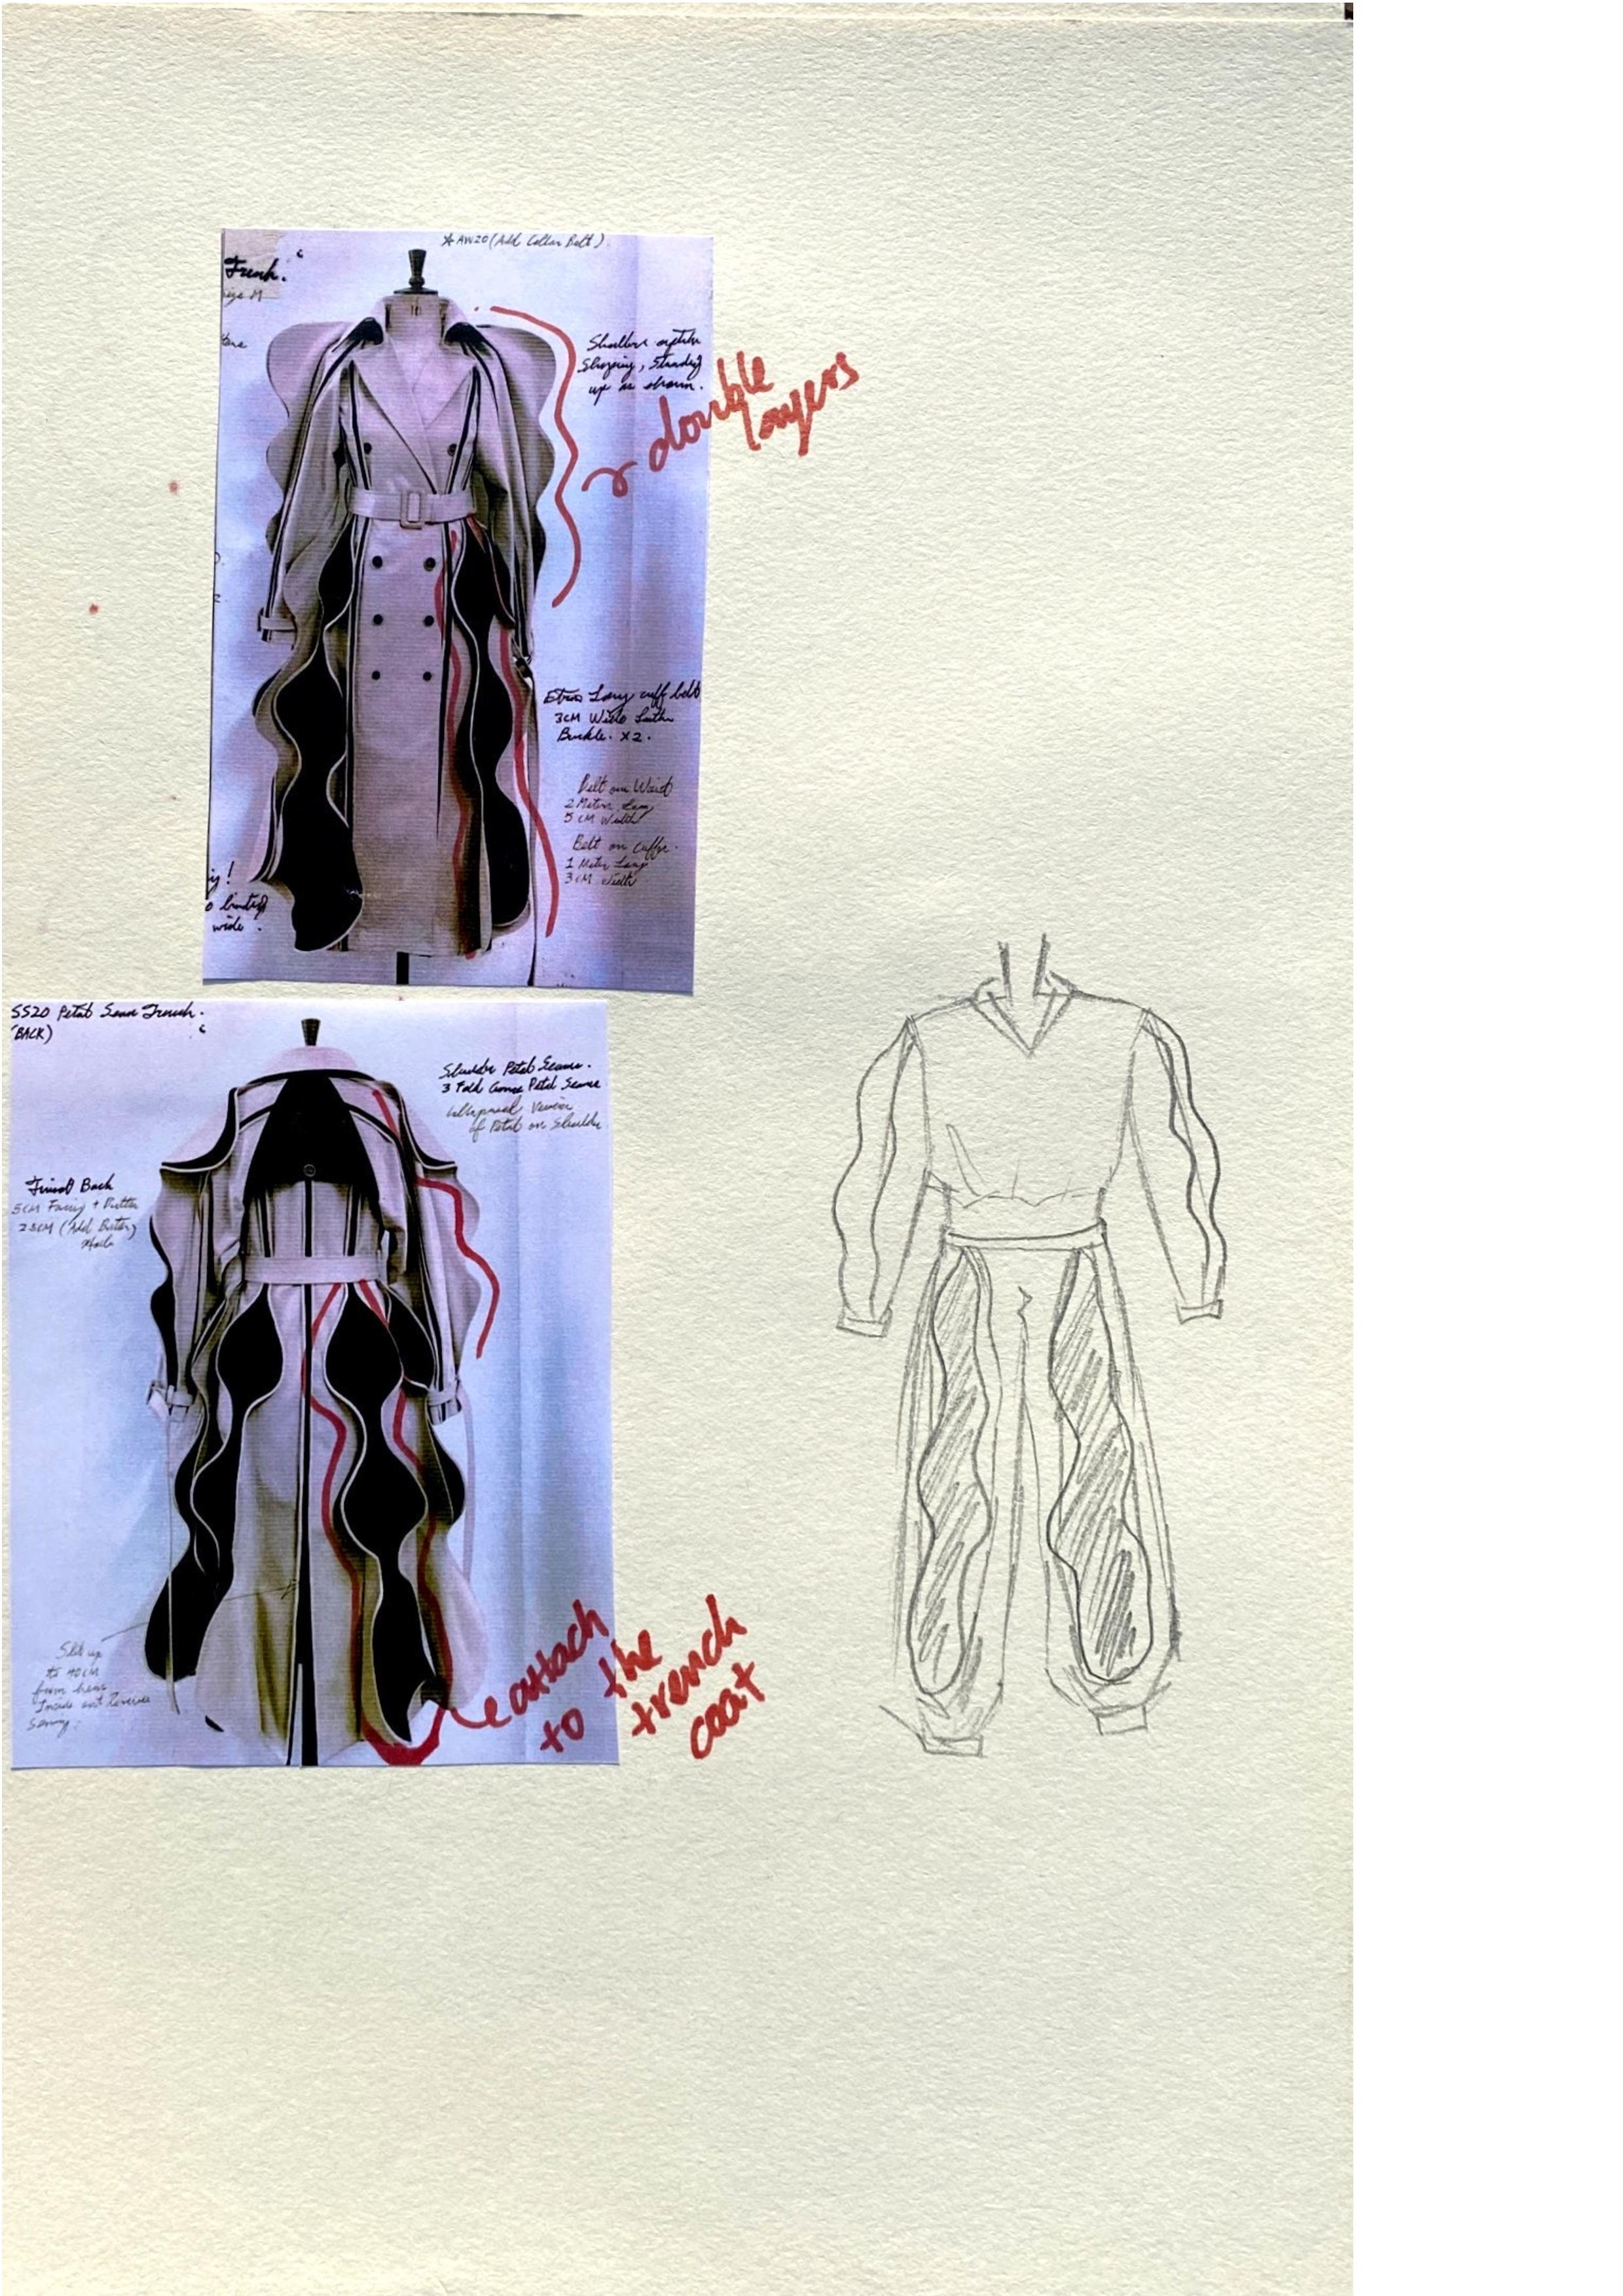 ☆ AW20 (Add Collar Belt)
Trench.
size M
Shoulder
Shaping, Standing
up as shown.
double
layers
Extra Long cuff belt
3CM Wide Leather
Buckle. X2.
Belt on Waist
2 Meter Long
5 CM Width
Belt on Cuffs.
1 Meter Long
3 CM Width
wide.
SS20 Petal Seam Trench.
(BACK)
Shoulder Petal Seams.
3 Fold Petal Seams
Version
of Petal on Shoulder
Back
5CM Facing + Button
23CM (Add Button)
Slit up
to 40CM
from hem
Inside out Reverse
attach
to the
trench
coat